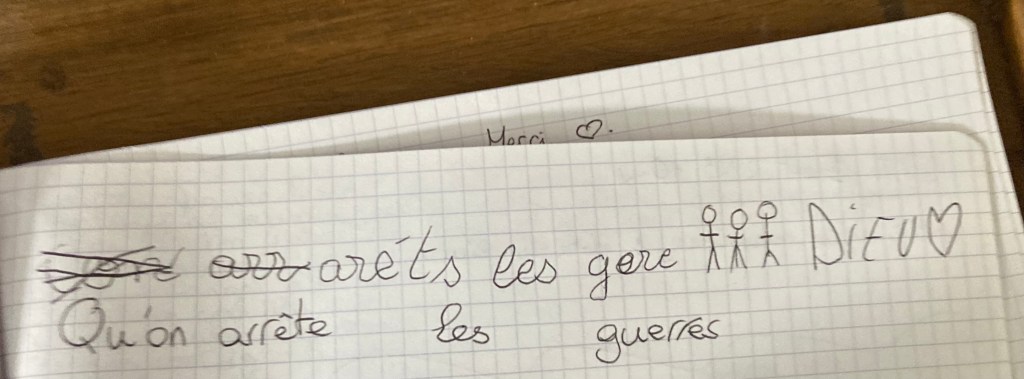 Merci ♡.
arêts les gere DiEU♡
Qu'on arrête les guerres